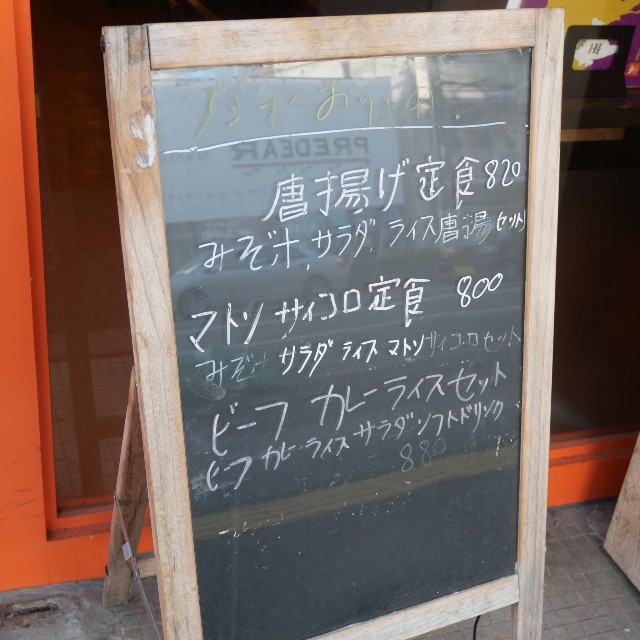 PREDEAR
唐揚げ定食 820
みぞ汁,サラダ,ライス唐揚セット
マトソサイコロ定食 800
みぞ汁 サラダライスマトソサイコロセット
ビーフ カレーライスセット
カレーライスサラダソフトドリンク
880